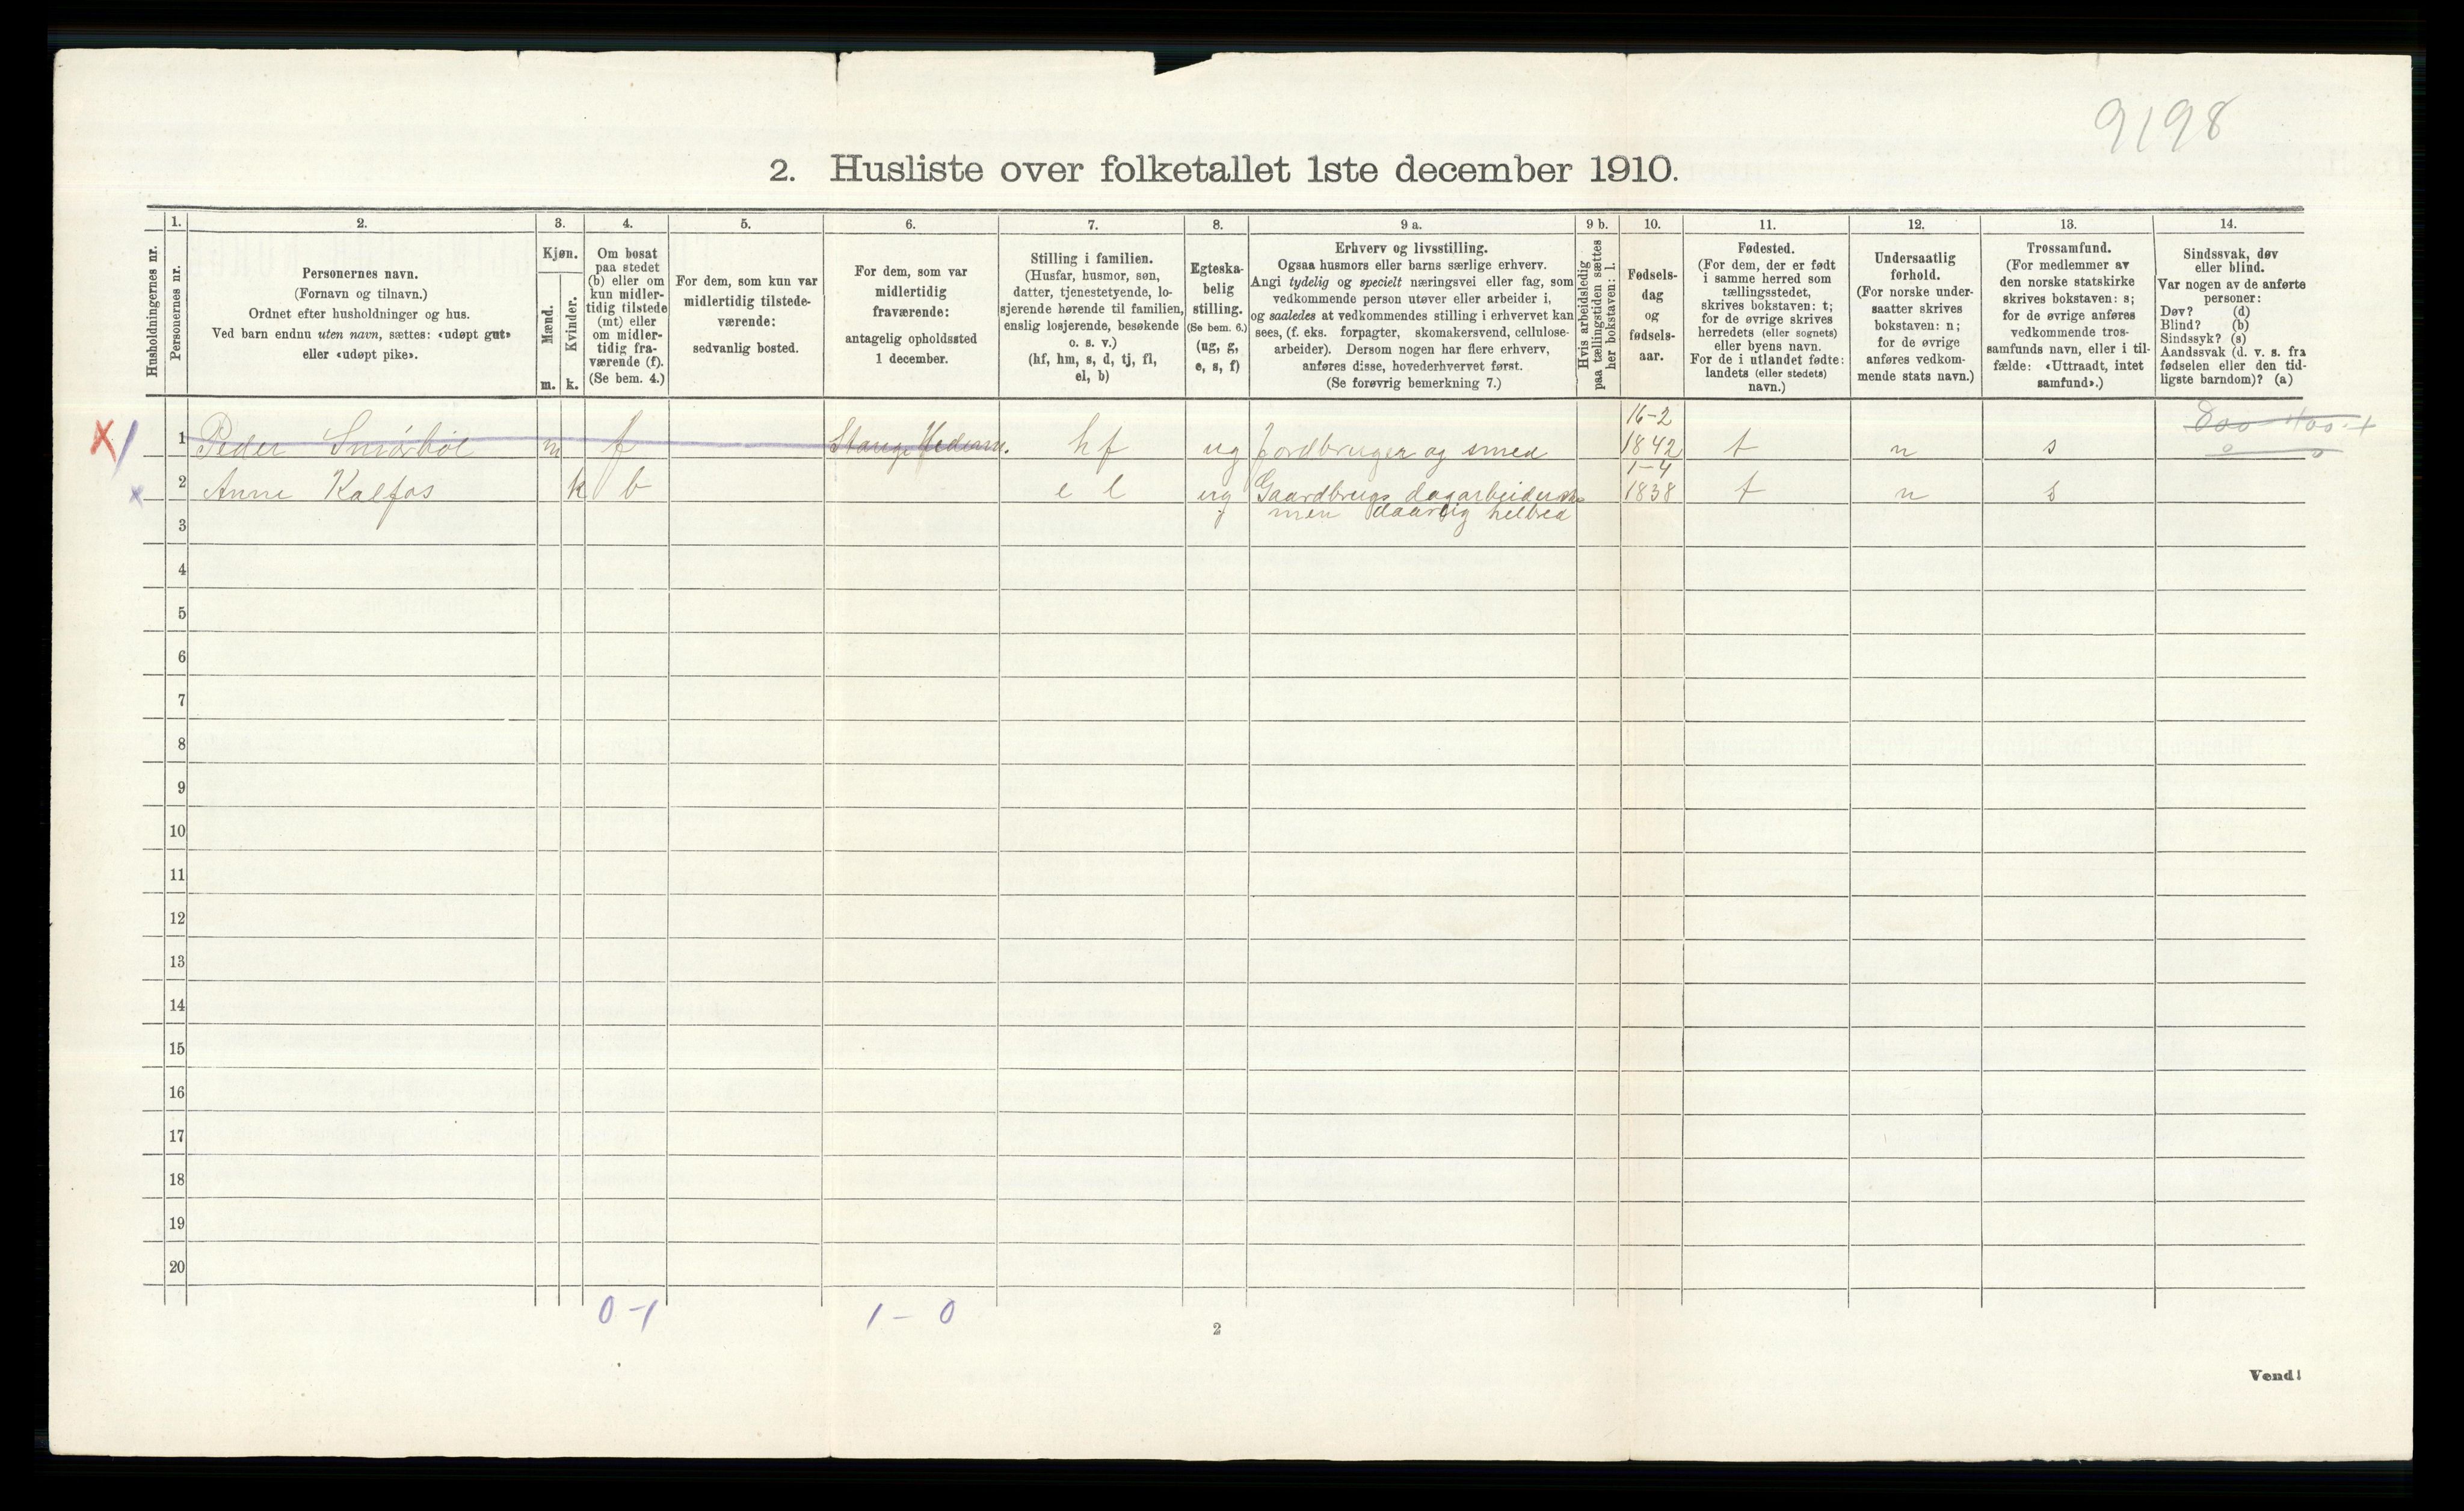 9198
2. Husliste over folketallet 1ste december 1910.
Husholdningernes nr.
1.
Personernes nr.
2.
Personernes navn.
(Fornavn og tilnavn.)
Ordnet efter husholdninger og hus.
Ved barn endnu uten navn, sættes: «udøpt gut»
eller «udøpt pike».
3.
Kjøn.
Mænd.
m.
Kvinder.
k.
4.
Om bosat
paa stedet
(b) eller om
kun midler-
tidig tilstede
(mt) eller
om midler-
tidig fra-
værende (f).
(Se bem. 4.)
5.
For dem, som kun var
midlertidig tilstede-
værende:
sedvanlig bosted.
6.
For dem, som var
midlertidig
fraværende:
antagelig opholdssted
1 december.
7.
Stilling i familien.
(Husfar, husmor, søn,
datter, tjenestetyende, lo-
sjerende hørende til familien,
enslig losjerende, besøkende
o. s. v.)
(hf, hm, s, d, tj, fl,
el, b)
8.
Egteska-
belig
stilling.
(Se bem. 6.)
(ug, g,
e, s, f)
9 a.
Erhverv og livsstilling.
Ogsaa husmors eller barns særlige erhverv.
Angi tydelig og specielt næringsvei eller fag, som
vedkommende person utøver eller arbeider i,
og saaledes at vedkommendes stilling i erhvervet kan
sees, (f. eks. forpagter, skomakersvend, cellulose-
arbeider). Dersom nogen har flere erhverv,
anføres disse, hovederhvervet først.
(Se forøvrig bemerkning 7.)
9 b.
Hvis arbeidsledig
paa tællingstiden sættes
her bokstaven: l.
10.
Fødsels-
dag
og
fødsels-
aar.
11.
Fødested.
(For dem, der er født
i samme herred som
tællingsstedet,
skrives bokstaven: t;
for de øvrige skrives
herredets (eller sognets)
eller byens navn.
For de i utlandet fødte:
landets (eller stedets)
navn.)
12.
Undersaatlig
forhold.
(For norske under-
saatter skrives
bokstaven: n;
for de øvrige
anføres vedkom-
mende stats navn.)
13.
Trossamfund.
(For medlemmer av
den norske statskirke
skrives bokstaven: s;
for de øvrige anføres
vedkommende tros-
samfunds navn, eller i til-
fælde: «Uttraadt, intet
samfund».)
14.
Sindssvak, døv
eller blind.
Var nogen av de anførte
personer:
Døv? (d)
Blind? (b)
Sindssyk? (s)
Aandssvak (d. v. s. fra
fødselen eller den tid-
ligste barndom)? (a)
16-2
800 400 +
X 1 Peder Smørbøl m f Stange Hedem. hf ug Jordbruger og smed 1842 t n s
1-4
x 2 Anne Kalfos k b el ug Gaardbrugs 1838 t n s
men daarlig helbred
3
4
5
6
7
8
9
10
11
12
13
14
15
16
17
18
19
20
0-1 1-0
2
Vend!